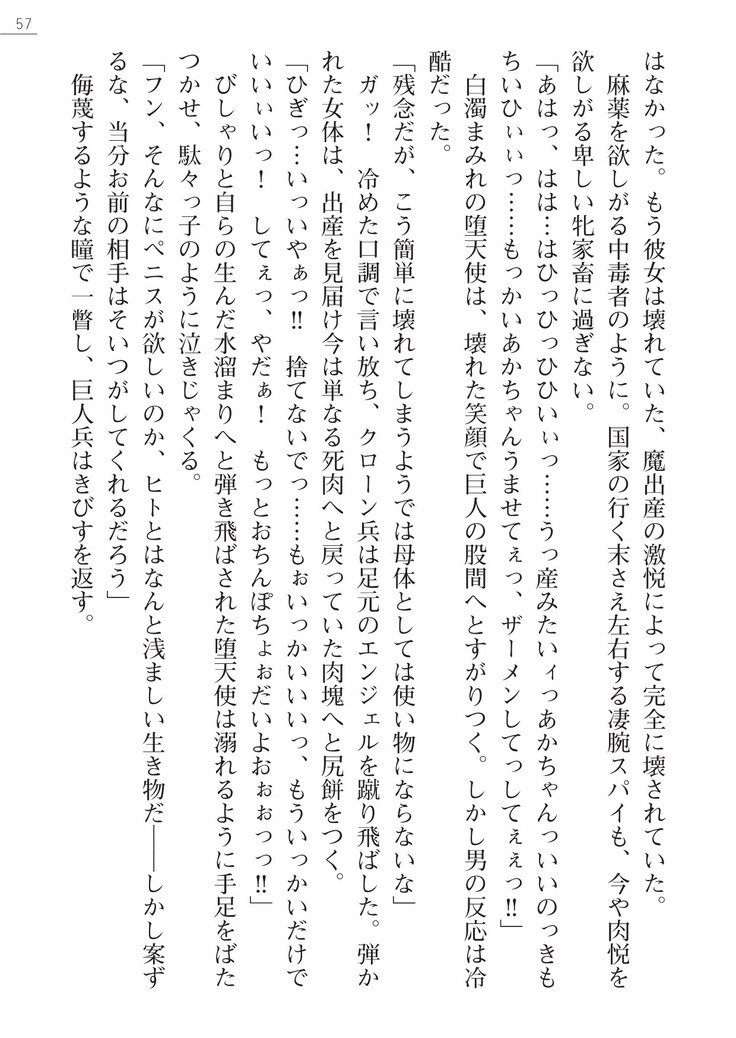 57
はなかった。もう彼女は壊れていた、魔出産の激悦によって完全に壊されていた。
麻薬を欲しがる中毒者のように。国家の行く末さえ左右する凄腕スパイも、今や肉悦を
欲しがる卑しい牝家畜に過ぎない。
「あはっ、はは…はひっひっひひいぃっ……うっ産みたいィっあかちゃんっいいのっきも
ちいひぃぃっ……もっかいあかちゃんうませてぇっ、ザーメンしてってしてぇぇっ!!」
白濁まみれの堕天使は、壊れた笑顔で巨人の股間へとすがりつく。しかし男の反応は冷
酷だった。
「残念だが、こう簡単に壊れてしまうようでは母体としては使い物にならないな」
ガッ！　冷めた口調で言い放ち、クローン兵は足元のエンジェルを蹴り飛ばした。弾か
れた女体は、出産を見届け今は単なる死肉へと戻っていた肉塊へと尻餅をつく。
「ひぎっ…いっいやぁっ!!　捨てないでっ……もぉいっかいいいっ、もういっかいだけで
いいぃいっ！　してぇっ、やだぁ！　もっとおちんぽちょぉだいよおぉぉっっ!!」
びしゃりと自らの生んだ水溜まりへと弾き飛ばされた堕天使は溺れるように手足をばた
つかせ、駄々っ子のように泣きじゃくる。
「フン、そんなにペニスが欲しいのか、ヒトとはなんと浅ましい生き物だ――しかし案ず
るな、当分お前の相手はそいつがしてくれるだろう」
侮蔑するような瞳で一瞥し、巨人兵はきびすを返す。